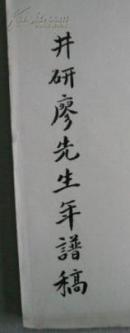 井研廖先生年譜稿